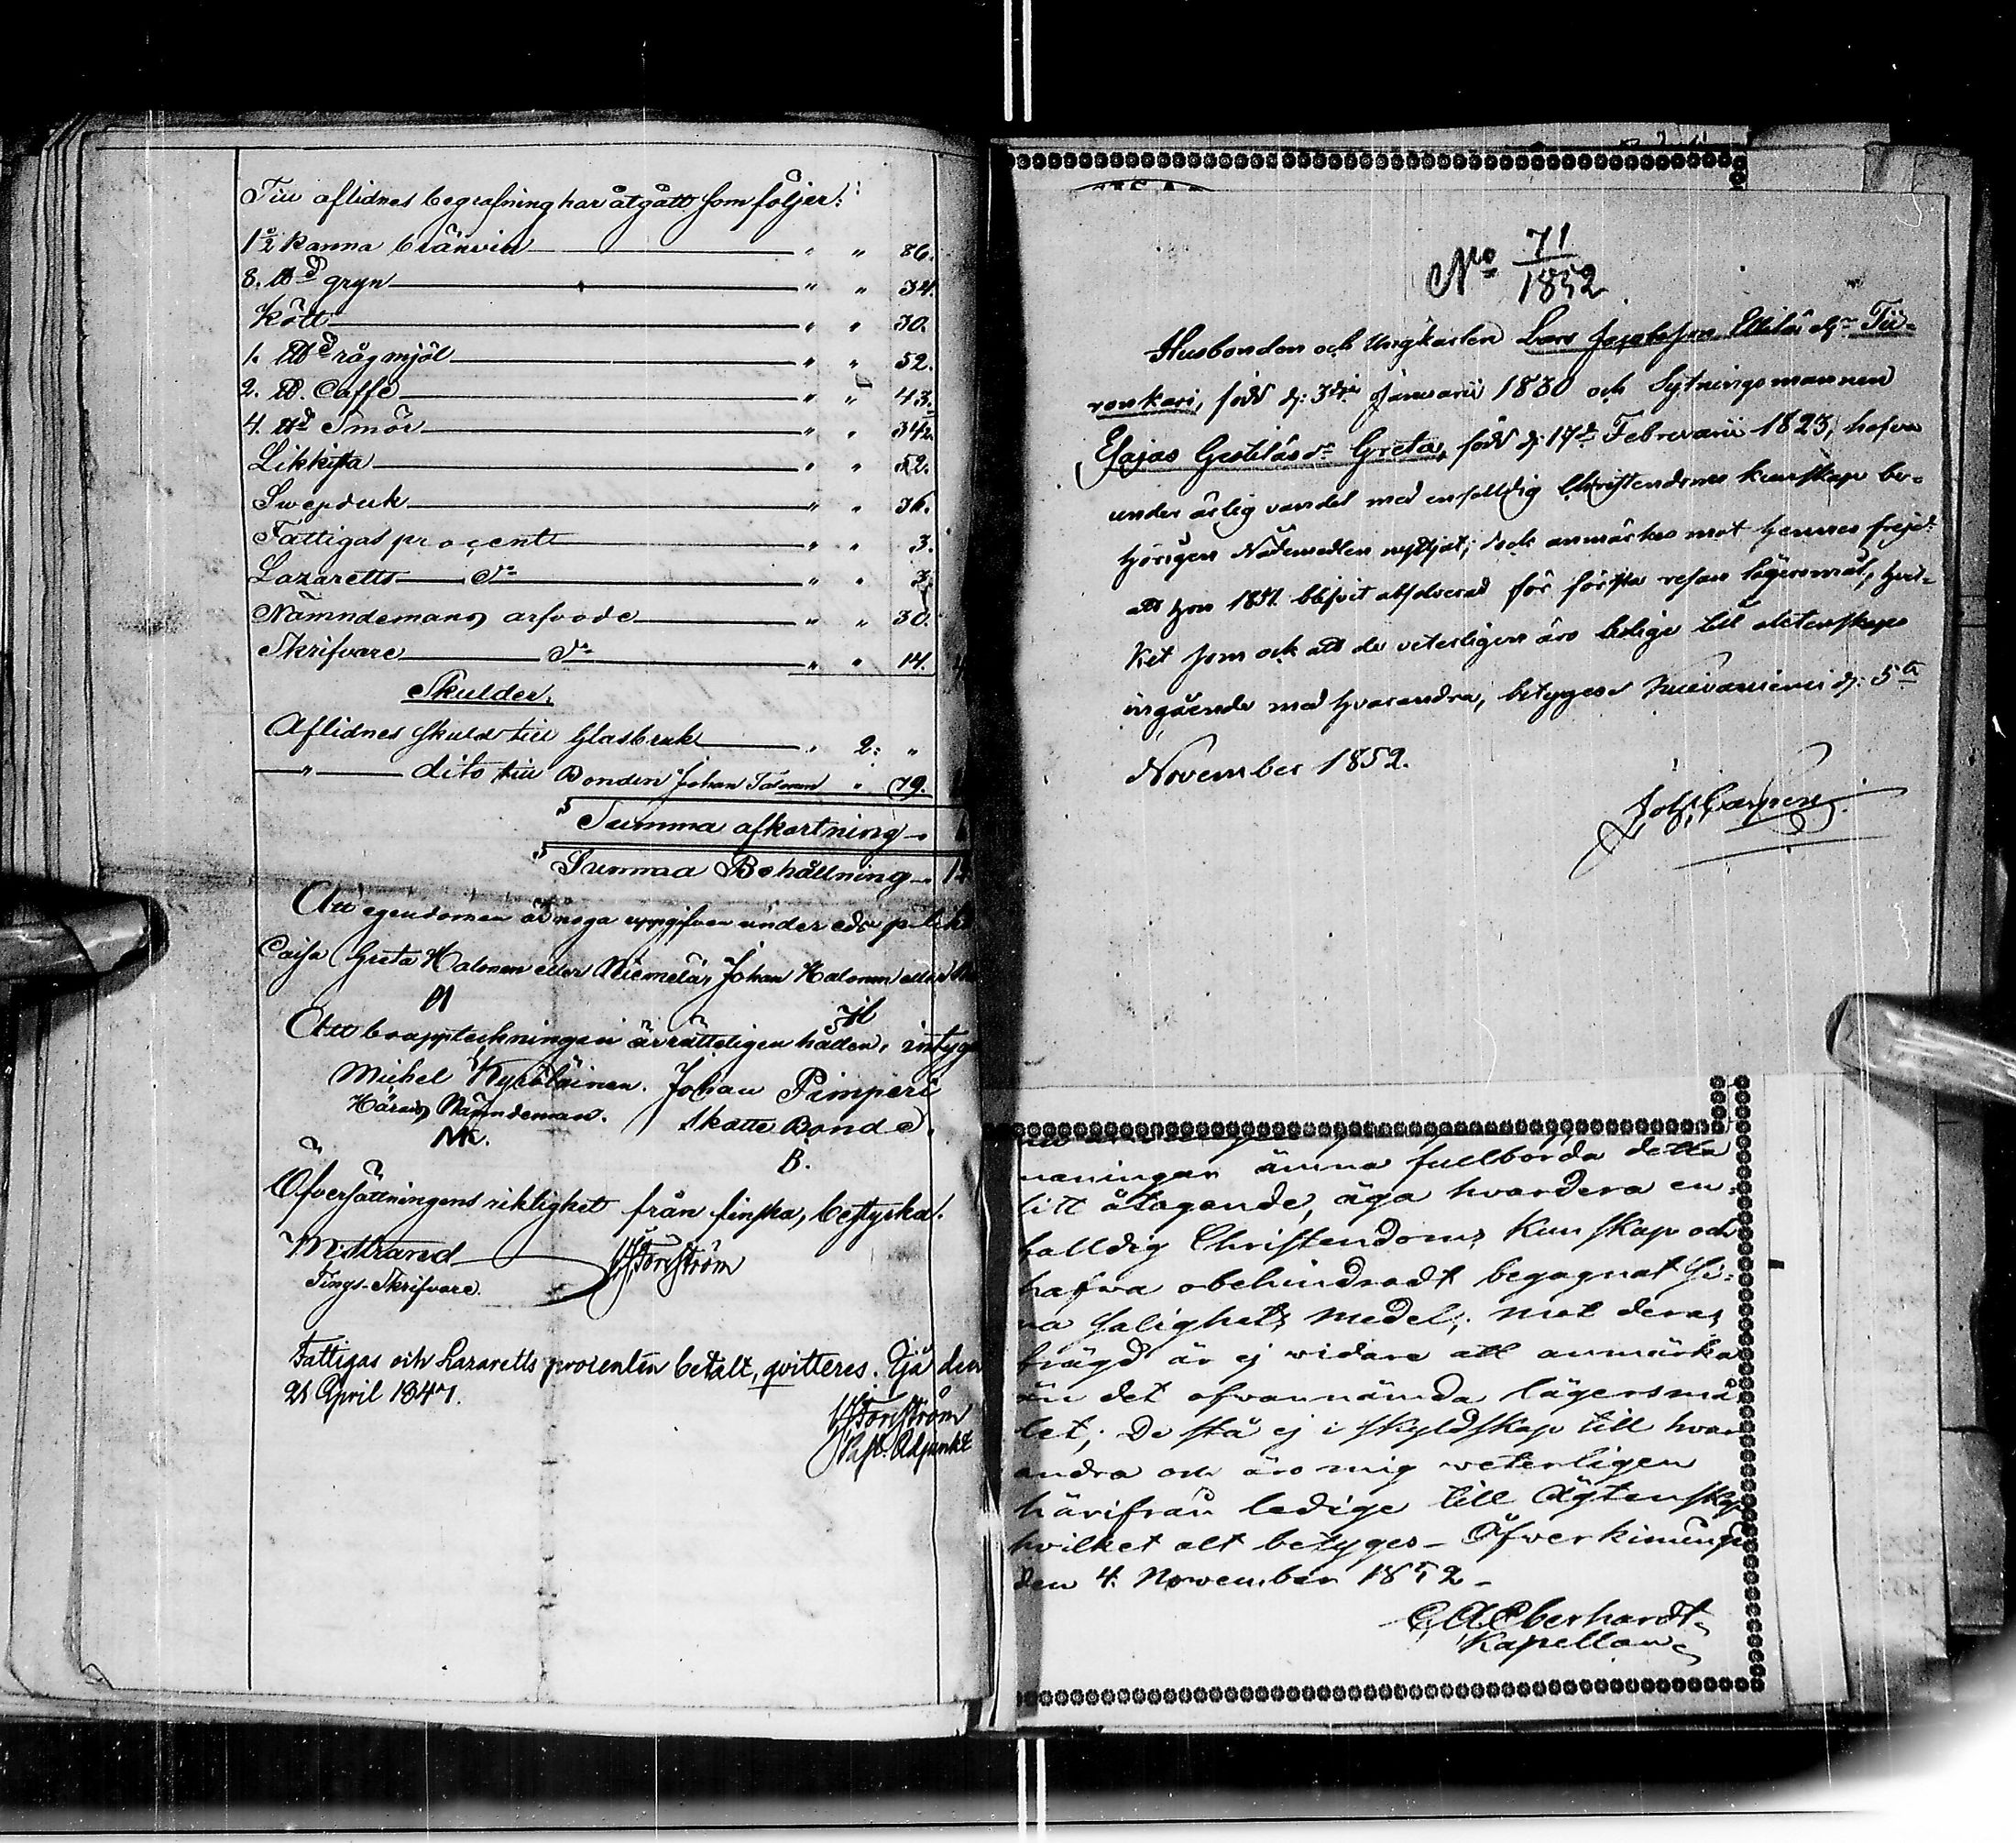 Till aflidnes begrafning har åtgått som följer:
1½ kanna bränvin " " 86.
8. ℔d gryn " " 34.
Kött " " 30.
1. ℔d rågmjöl " " 52.
2. ℔. Caffe " " 43.
4. ℔d Smör " " 34½.
Likkista " " 52.
Swepduk " " 36.
Fattigas procent " " 3.
Lazaretts do " " 3.
Nämndemans arfvode " " 30.
Skrifvare do " " 14.
Skulder.
Aflidnes skuld till Glasbruk " 2: "
" dito till Bonden Johan " 79.
Summa afkortning
Summa Behållning
Att egendomen är noga uppgifven under eds
Caisa Greta Halonen eller Niemelä, Johan Halonen eller
Att bouppteckningen är rätteligen hållen, intyga
Michel Kyröläinen. Johan Pimperi
Härads Nämndeman. Skatte Bonde.
MK. B.
Öfversättningens riktighet från finska, bestyrka.
M Strand Forsström
Tings-Skrifvare.
Fattigas och Lazaretts procenten betalt, qvitteres. Ijå den
21 April 1847.
Forsström
Past. Adjunkt
No 71
1852
Husbonden och Ungkarlen Lars Josefsson eller Tii-
ronkari, född d: 3dje Januarii 1830 och Sytningsmannen
Esajas dr Greta, född d: 17de Februarii 1823, hafva
under ärlig vandel med enfalldig Christendoms kunskap be-
hörigen Nådemedlen nyttjat; dock anmärkes mot hennes frejd:
att hon 1851. blifvit absolverad för första resan lägersmål, hvil-
ket som ock att de veterligen äro ledige till äktenskaps
ingående med hvarandra, betyges d: 5te
November 1852.
Joh:
naningar ämna fullborda detta
sitt åtagande, äga hvardera en-
falldig Christendoms kunskap och
hafva obehindradt begagnat si-
na salighets medel; mot deras
frägd är ej widare att anmärka
än det ofvannämda lägersmå-
let; De stå ej i skyldskap till hvar
andra och äro mig weterligen
härifrån ledige till Ägtenskap
hvilket alt betyges - Öfverkiminge
den 4. November 1852 -
C A Eberhardt
Kapellan